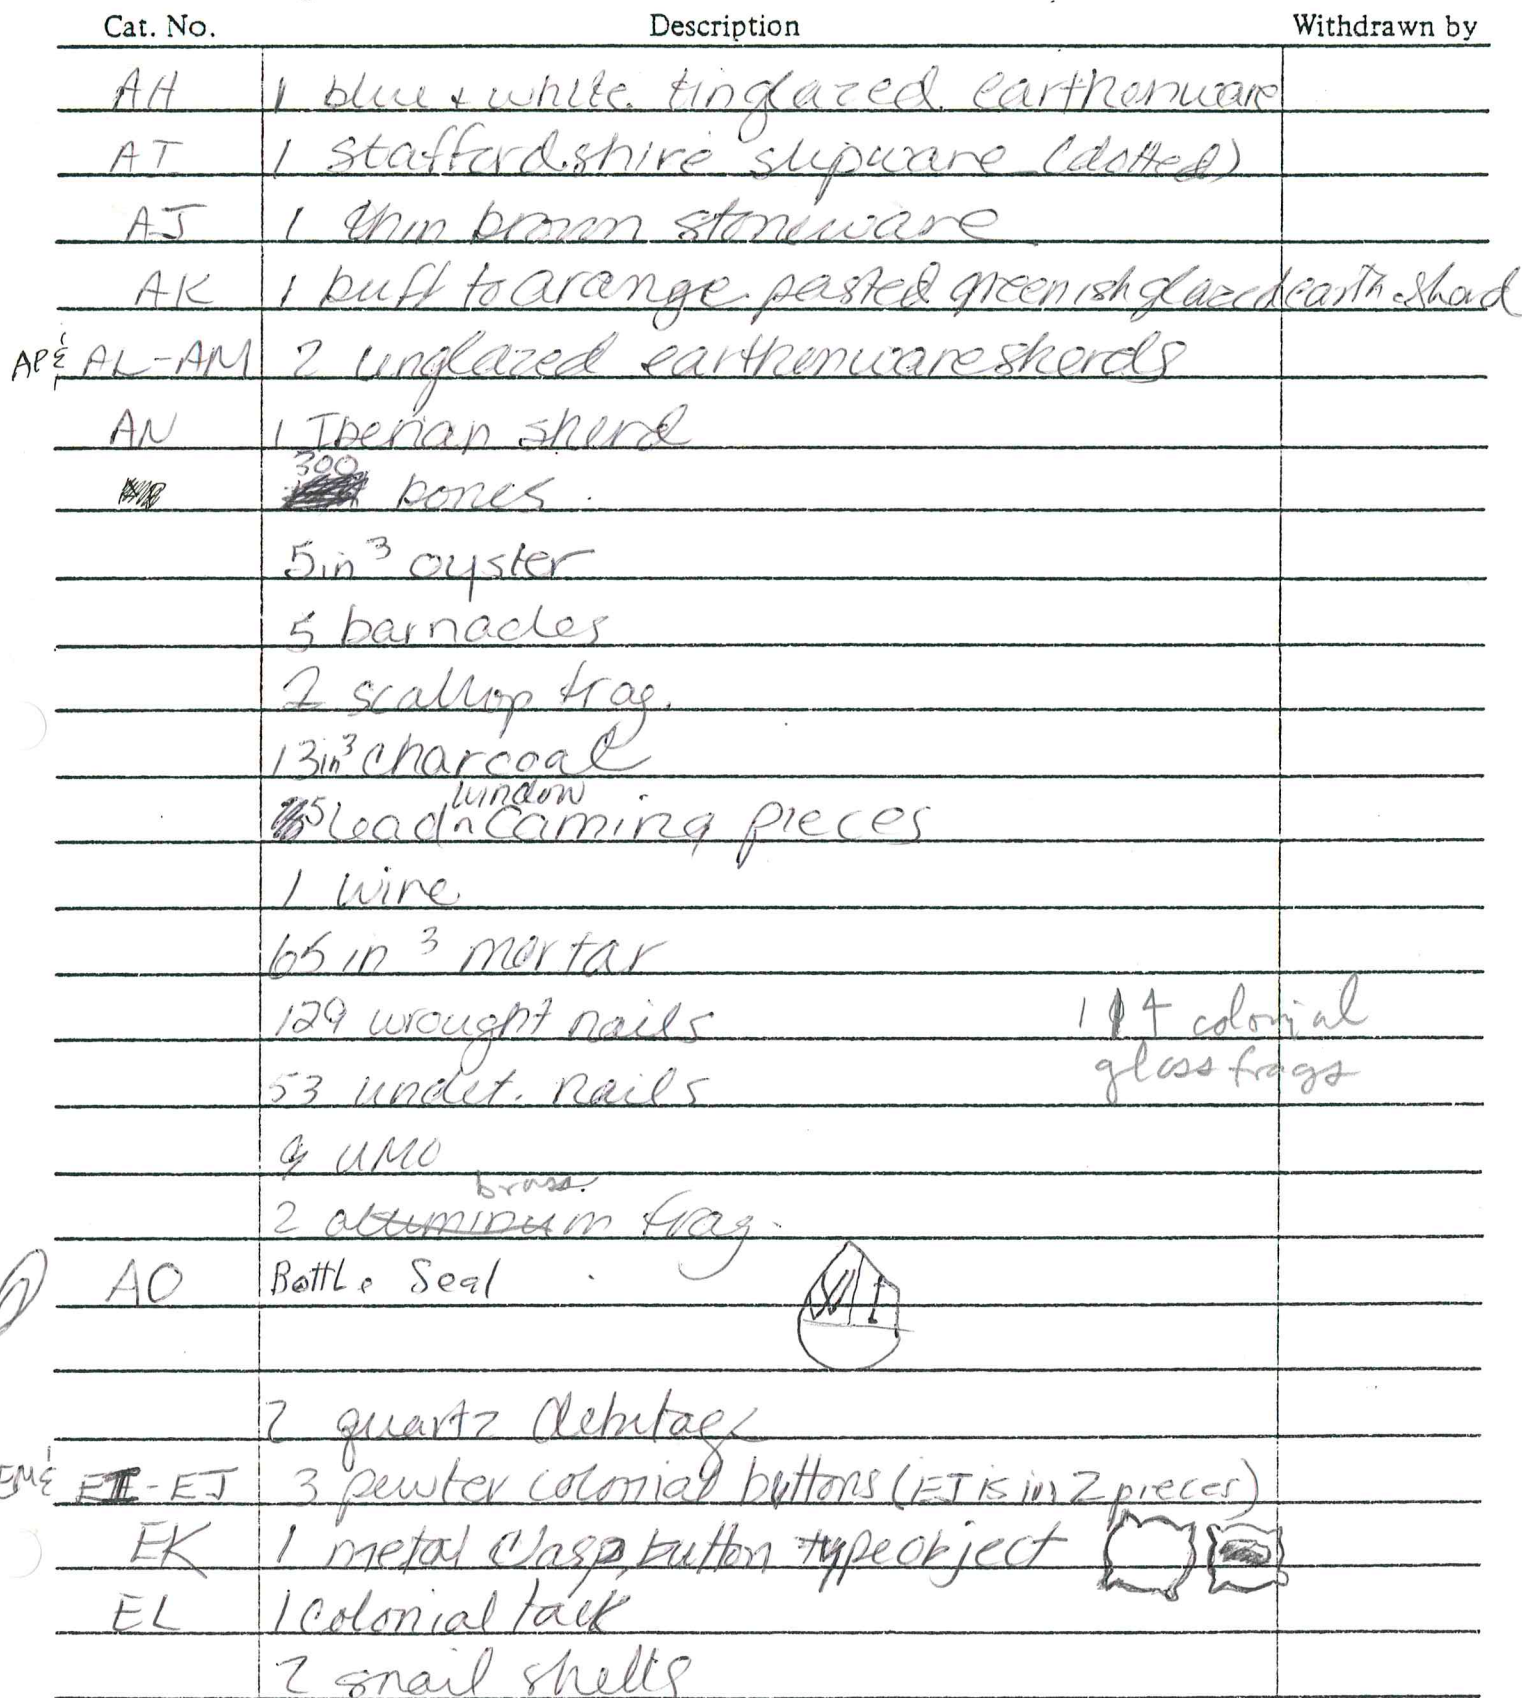 Cat. No. Description Withdrawn by
AH 1 blue + white tinglazed earthenware
AI 1 Staffordshire slipware (dotted)
AJ 1 thin brown stoneware
AK 1 buff to orange pasted greenish glazed earth. sherd
AP & AL-AM 2 unglazed earthenware sherds
AN 1 Iberian sherd
300 bones
5 in³ oyster
5 barnacles
2 scallop frag.
13 in³ charcoal
window
5 lead ^ caming pieces
1 wire
65 in³ mortar
129 wrought nails 114 colonial
glass frags
53 undet. nails
9 UMO
brass
2 aluminum frag.
AO Bottle Seal WI
2 quartz debitage
EM & EI-EJ 3 pewter colonial buttons (EJ is in 2 pieces)
EK 1 metal clasp, button type object
EL 1 colonial tack
2 snail shells